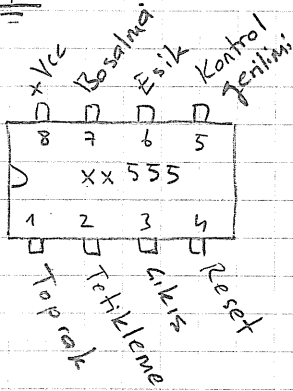 +Vcc
Bosalma
Esik
Kontrol
gerilimi
8 7 6 5
xx 555
1 2 3 4
Toprak
Tetikleme
Çıkış
Reset